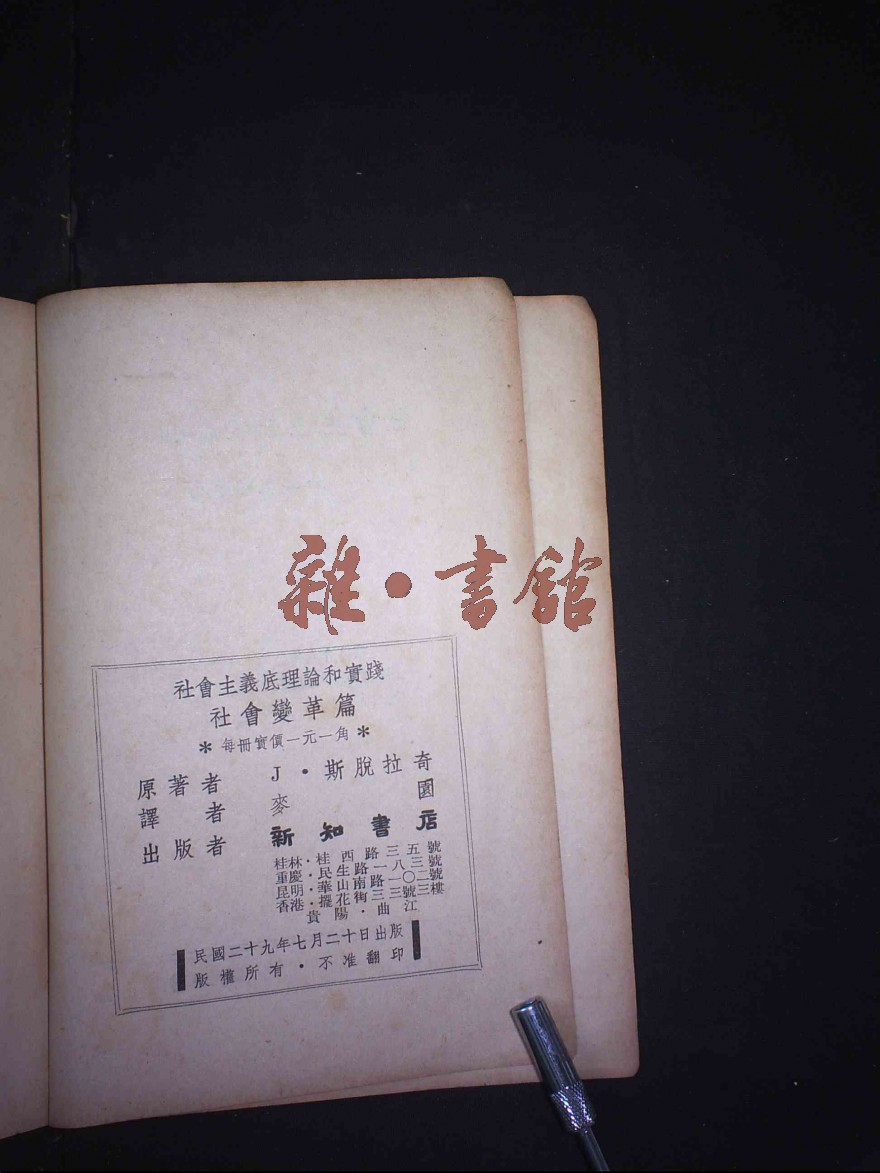 雜•書舘
社會主義底理論和實踐
社會變革篇
*每冊實價一元一角*
原著者 J•斯脫拉奇
譯者 麥園
出版者 新知書店
桂林•桂西路三五號
重慶•民生路一八三號
昆明•華山南路一〇二號
香港•擺花街三三號三樓
貴陽•曲江
民國二十九年七月二十日出版
版權所有•不准翻印